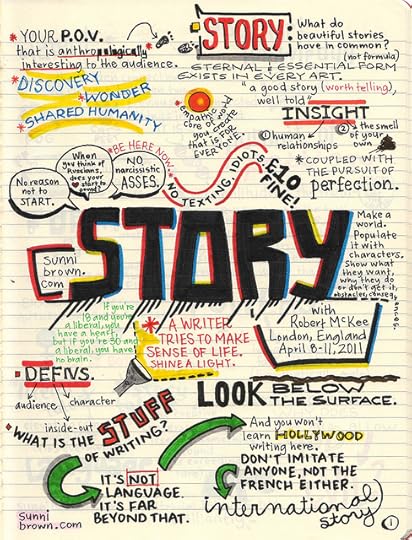 *YOUR P.O.V.
that is anthropologically
interesting to the audience.
*DISCOVERY
*WONDER
*SHARED HUMANITY
STORY:
What do
beautiful stories
have in common?
(not formula)
ETERNAL & ESSENTIAL FORM
EXISTS IN EVERY ART.
"a good story (worth telling),
well told"
INSIGHT
①human
relationships
② the smell
of your
own
*COUPLED WITH
THE PURSUIT OF
perfection.
empathic
core of world
you create
that is FOR
EVERYONE.
*BE HERE NOW*
NO TEXTING, IDIOTS
£10
FINE!
No reason
not to
START.
When
you think of
Russians,
does your
start to
pound?
NO
narcissistic
ASSES.
STORY
sunni
brown.
com
Make a
world.
Populate
it with
characters.
Show what
they want,
why they do
or don't get it,
obstacles, comedy,
With
Robert McKee
London, England
April 8-11, 2011
If you're
18 and you're
a liberal, you
have a heart,
but if you're 50 and
a liberal, you have
no brain.
*A WRITER
TRIES TO MAKE
SENSE OF LIFE.
SHINE A LIGHT.
*DEFNS.
audience
character
inside-out
LOOK BELOW
THE SURFACE.
*WHAT IS THE STUFF
OF WRITING?
IT'S NOT
LANGUAGE.
IT'S FAR
BEYOND THAT.
And you won't
learn HOLLYWOOD
writing here.
DON'T IMITATE
ANYONE, NOT THE
FRENCH EITHER.
international
story
sunni
brown.com
1